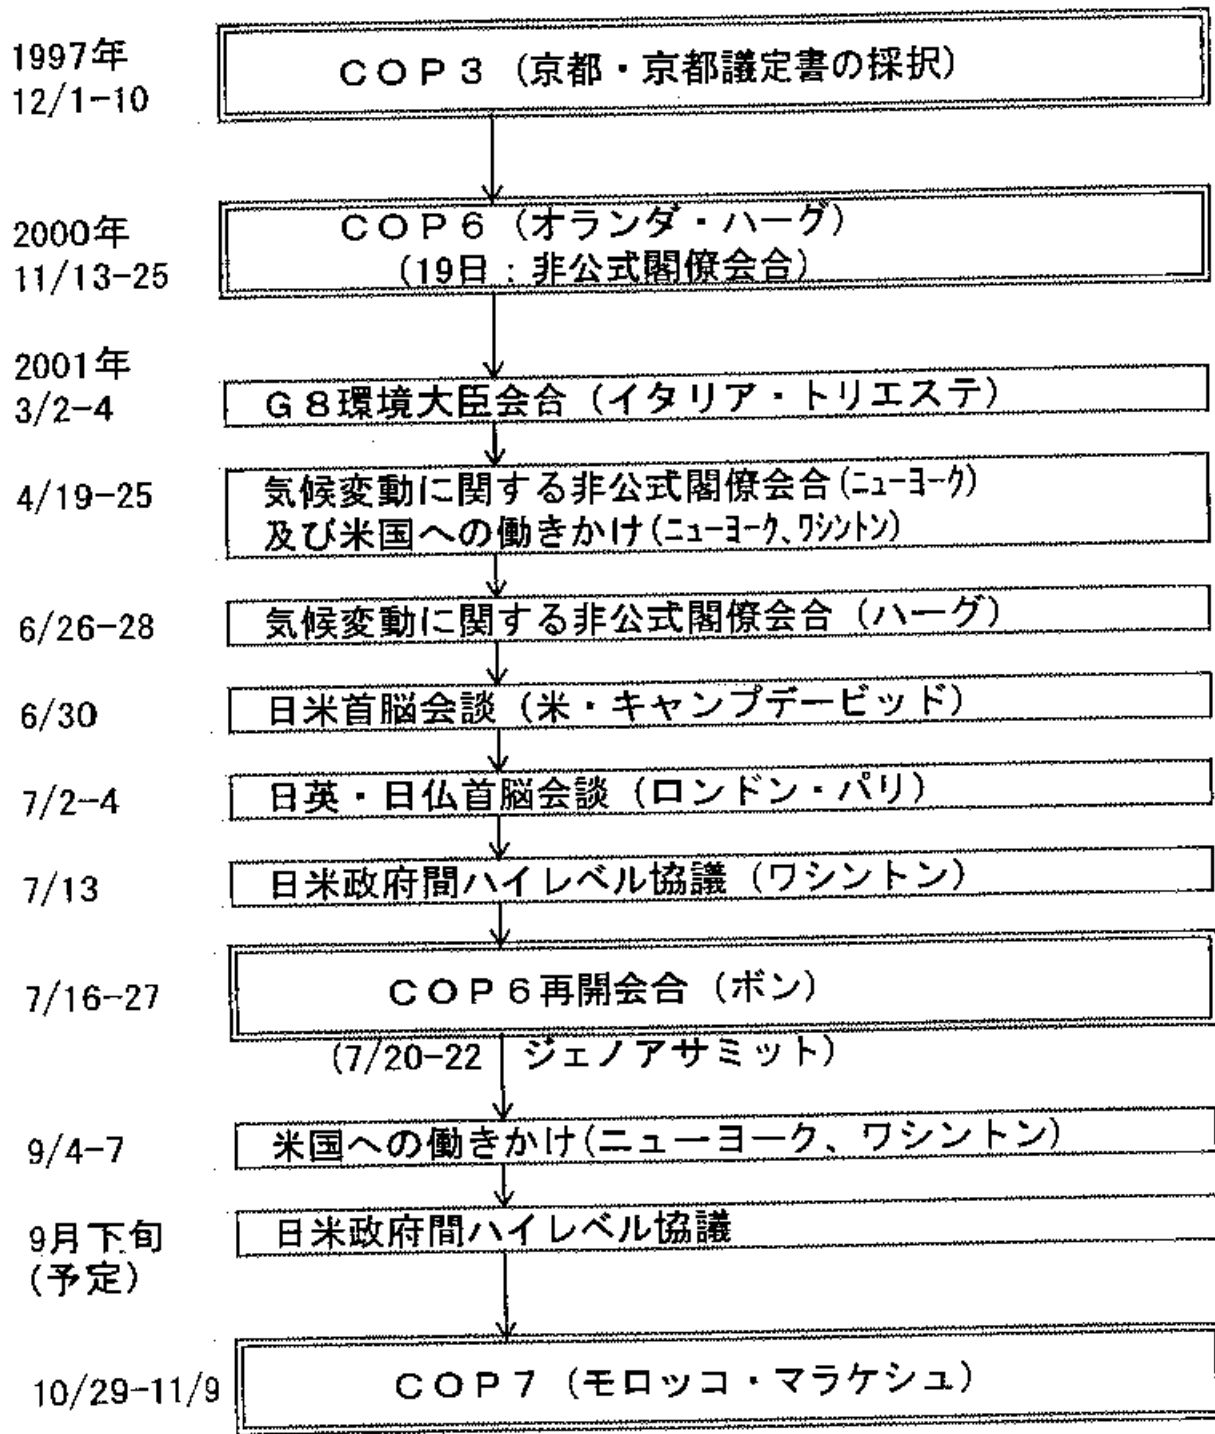 1997年
12/1-10
COP3（京都・京都議定書の採択）
2000年
11/13-25
COP6（オランダ・ハーグ）
（19日：非公式閣僚会合）
2001年
3/2-4
G8環境大臣会合（イタリア・トリエステ）
4/19-25
気候変動に関する非公式閣僚会合(ﾆｭｰﾖｰｸ)
及び米国への働きかけ(ﾆｭｰﾖｰｸ、ﾜｼﾝﾄﾝ)
6/26-28
気候変動に関する非公式閣僚会合（ハーグ）
6/30
日米首脳会談（米・キャンプデービッド）
7/2-4
日英・日仏首脳会談（ロンドン・パリ）
7/13
日米政府間ハイレベル協議（ワシントン）
7/16-27
COP6再開会合（ボン）
(7/20-22 ジェノアサミット)
9/4-7
米国への働きかけ(ニューヨーク、ワシントン)
9月下旬
(予定)
日米政府間ハイレベル協議
10/29-11/9
COP7（モロッコ・マラケシュ）